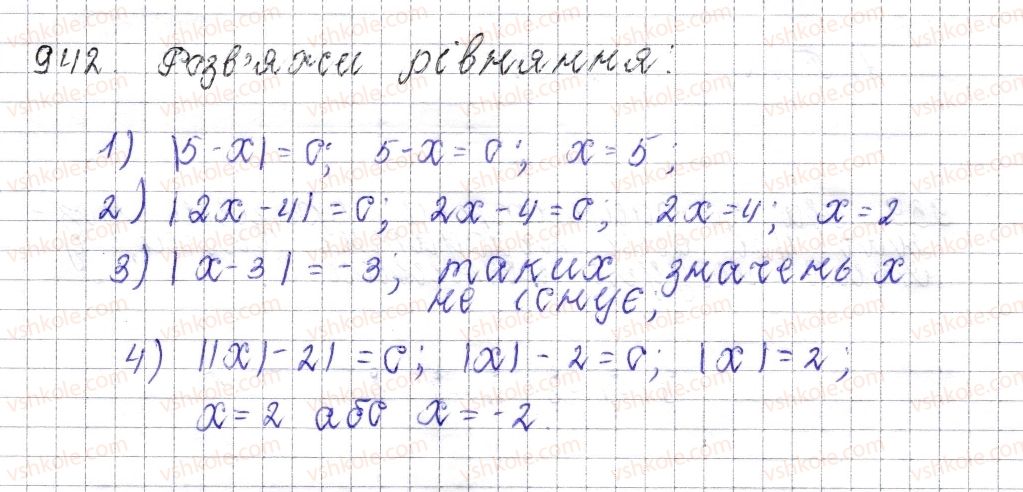 942. Розв'яжи рівняння:
1) |5-x|=0; 5-x=0; x=5;
2) |2x-4|=0; 2x-4=0; 2x=4; x=2
3) |x-3|=-3; таких значень x
не існує;
4) ||x|-2|=0; |x|-2=0; |x|=2;
x=2 або x=-2.